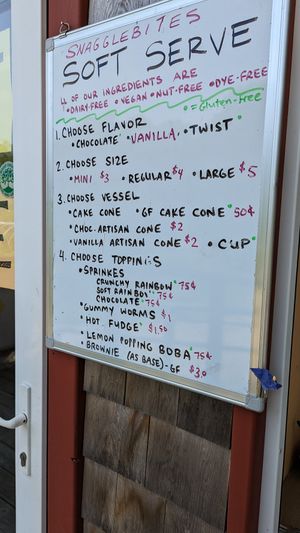 SNAGGLEBITES
SOFT SERVE
ALL OF OUR INGREDIENTS ARE
• DAIRY-FREE • VEGAN • NUT-FREE • DYE-FREE
• = Gluten-Free
1. CHOOSE FLAVOR
• CHOCOLATE • VANILLA • TWIST •
2. CHOOSE SIZE
• MINI $3 • REGULAR $4 • LARGE $5
3. CHOOSE VESSEL
• CAKE CONE • GF CAKE CONE • 50¢
• CHOC. ARTISAN CONE $2
• VANILLA ARTISAN CONE $2 • CUP •
4. CHOOSE TOPPINGS
• SPRINKES
CRUNCHY RAINBOW • 75¢
SOFT RAINBOW • 75¢
CHOCOLATE • 75¢
• GUMMY WORMS • $1
• HOT FUDGE • $1.50
• LEMON POPPING BOBA • 75¢
• BROWNIE (AS BASE) - GF $3.0